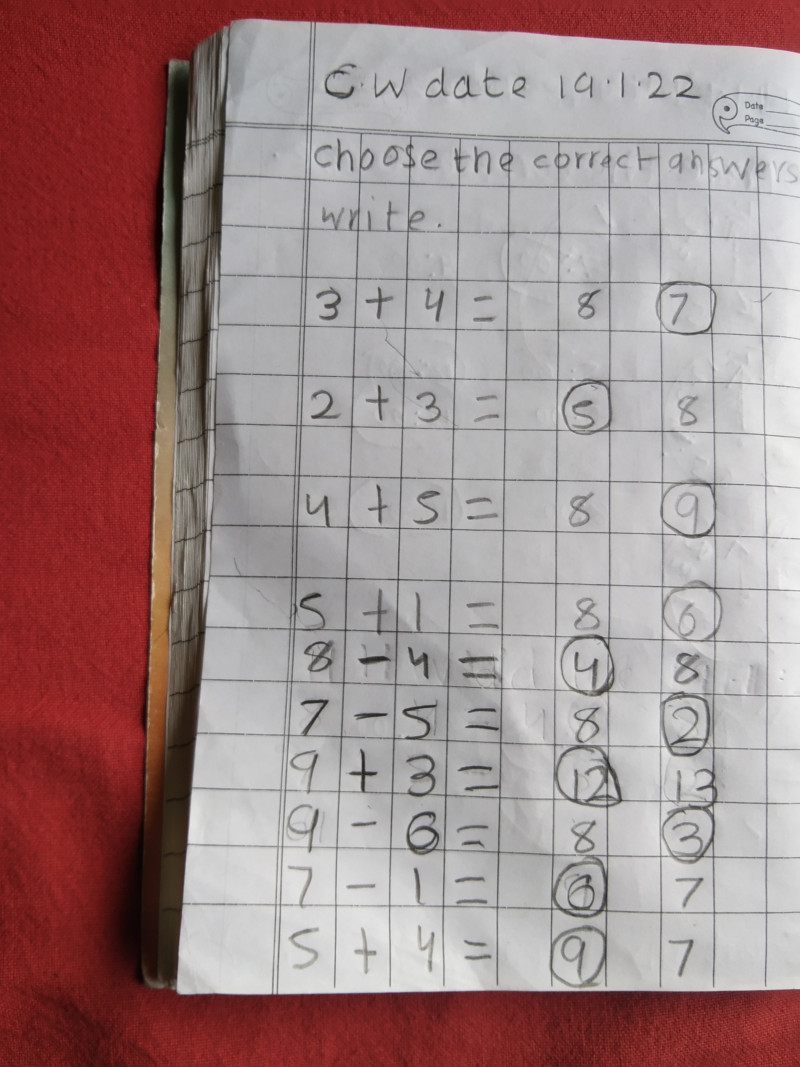 C.W date 19.1.22
Date
Page
choose the correct answers
write.
3 + 4 = 8 7
2 + 3 = 5 8
4 + 5 = 8 9
5 + 1 = 8 6
8 - 4 = 4 8
7 - 5 = 8 2
9 + 3 = 12 13
9 - 6 = 8 3
7 - 1 = 6 7
5 + 4 = 9 7